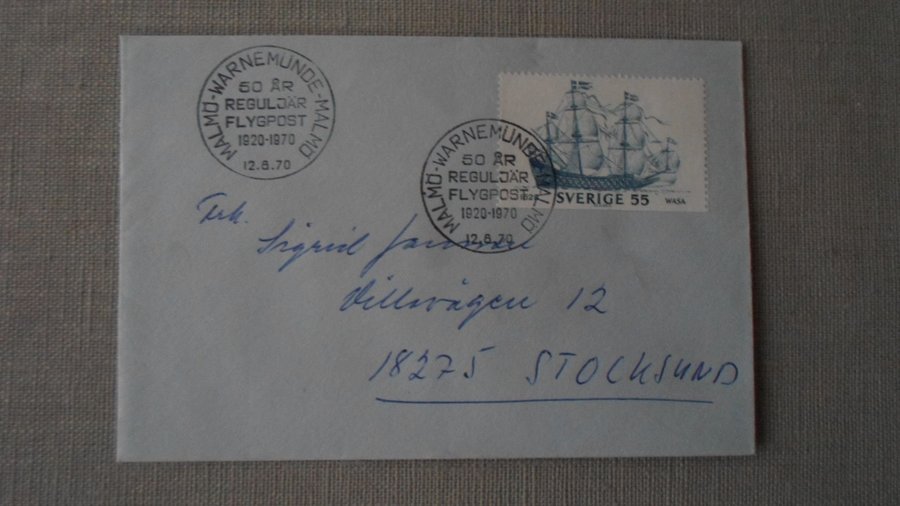 MALMÖ-WARNEMÜNDE-MALMÖ
50 ÅR
REGULJÄR
FLYGPOST
1920-1970
12.6.70
MALMÖ-WARNEMÜNDE-MALMÖ
50 ÅR
REGULJÄR
FLYGPOST
1920-1970
12.6.70
SVERIGE 55
WASA
Sigrid
12
18275 STOCKSUND